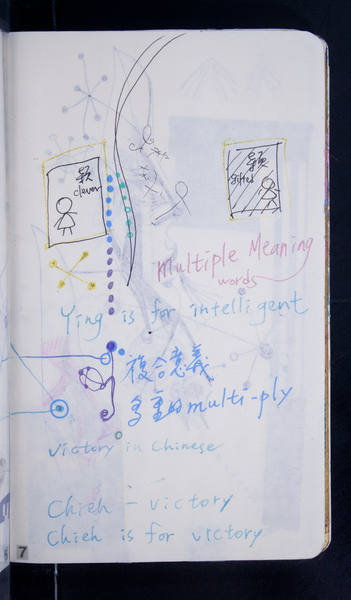 穎
clever
穎
gifted
Multiple Meaning
words
Ying is for intelligent
複合意義
多重的multi-ply
victory in Chinese
Chieh - victory
Chieh is for victory
7